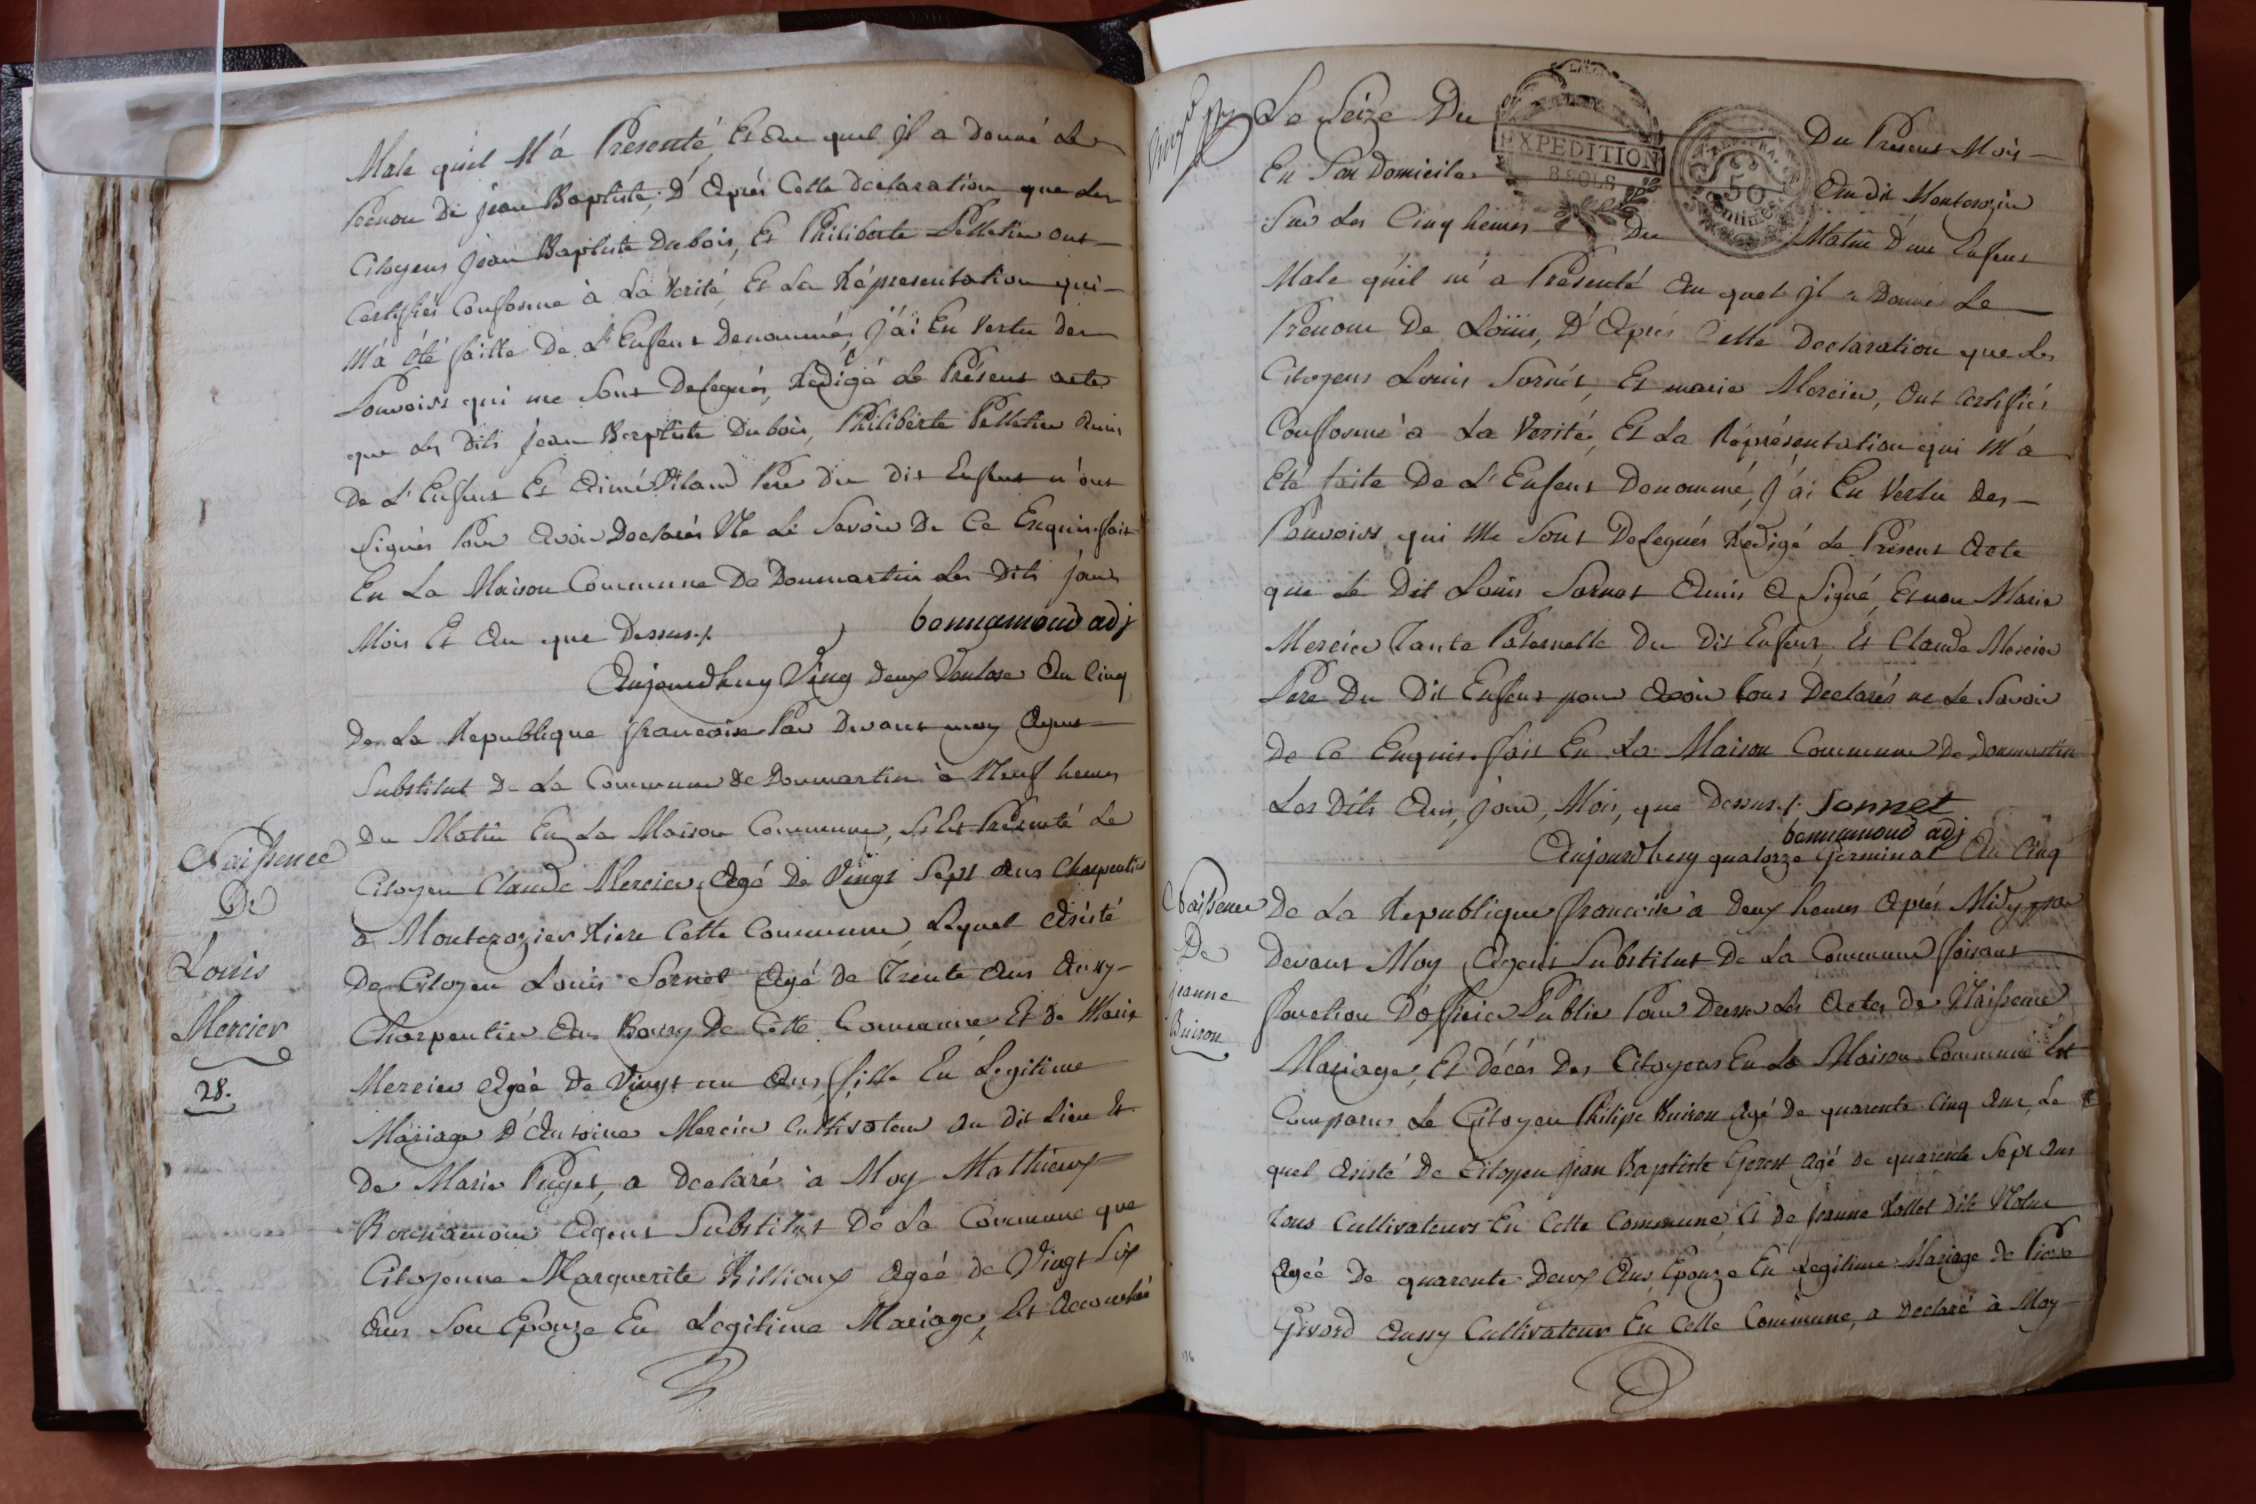 Male quil M'a Presenté Et au quel jl a donné Le
Prenom De jean Baptiste, D'Après Cette declaration que Les
Citoyens jean Baptiste dubois, Et Philiberte Pelletier ont
Certifiés Conforme à La Verité, Et La Répresentation qui
M'a été faitte De L'Enfent Denommé, j'ai En Vertu des
Pouvoirs qui me Sont Delegués, Redigé Le Présent acte
que Les Dits jean Baptiste Dubois, Philiberte Pelletier Amis
De L'Enfent Et Aimé Pere Du Dit Enfent n'ont
Signés Pour Avoir Declarés Ne Le Savoir De Ce Enquis. fait
En La Maison Commune De Dommartin Les Dits jours
Mois Et An que Dessus./.
bonnamoud adj
Aujourdhuy Ving deux Ventose An Cinq
De La Republique francoise Par Devant moy Agent
Substitut De La Commune De Dommartin à Neuf heures
Du Matin En La Maison Commune, S'Est Présenté Le
Citoyen Claude Mercier, Agé De Vingt Sept Ans Charpentier
à Montcrozier Riere Cette Commune, Lequel Asisté
De Citoyen Louis Sornet Agé de Trente Ans Aussy
Charpentier Au Bourg De Cette Commune Et De Marie
Mercier Agée De Vingt un Ans, fille En Legitime
Mariage D'Antoine Mercier Cultivateur Au Dit Lieu Et
De Marie Puget, a declaré à Moy Matthieux
Bonnamour Agent Substitut De La Commune que
Citoyenne Marguerite Billioux Agée De Vingt Six
Ans Son Epouze En Legitime Mariage, Est Accouchée
Naissence
De
Louis
Mercier
28.
Le Seize Du
Du Présent Mois
En Son Domicile
Au dit Montcrozier
Sur Les Cinq heures
Du
Matin D'un Enfent
EXPEDITION
8 SOLS
50
Centimes
Male qu'il m'a Présenté Au quel jl a Donné Le
Prenom De Loüis, D'Après Cette Declaration que Les
Citoyens Louis Sornet, Et marie Mercier, Ont Certifiés
Conforme à La Verité, Et La Réprésentation qui M'a
Eté faite De L'Enfent Denommé, j'ai En Vertu Des
Pouvoirs qui Me Sont Delegués Redigé Le Présent Acte
que Le Dit Louis Sornet Amis A Signé, Et non Marie
Mercier Tante Paternelle Du Dit Enfent, Et Claude Mercier
Pere Du Dit Enfent pour Avoir tous Declarés ne Le Savoir
De Ce Enquis. fait En La Maison Commune De Dommartin
Les Dits An, jour, Mois, que Dessus./. Sonnet
bonnamoud adj
Aujourdhuy quatorze Germinal An Cinq
De La Republique francoise à Deux heures Après Midy par
Devant Moy Agent Substitut De La Commune faisant
fonction D'officier Public Pour Dresser Les Actes De Naissence
Mariage, Et Décés Des Citoyens En La Maison Commune Est
Comparus Le Citoyen Philipe Buison Agé De quarente Cinq Ans, Le
quel Asisté De Citoyen jean Baptiste Agé De quarente Sept Ans
Tous Cultivateurs En Cette Commune, Et De jeanne
Agée De quarente Deux Ans, Epouze En Legitime Mariage de Piere
Givord Aussy Cultivateur En Cette Commune, a Declaré à Moy
Naissence
De
jeanne
Buison